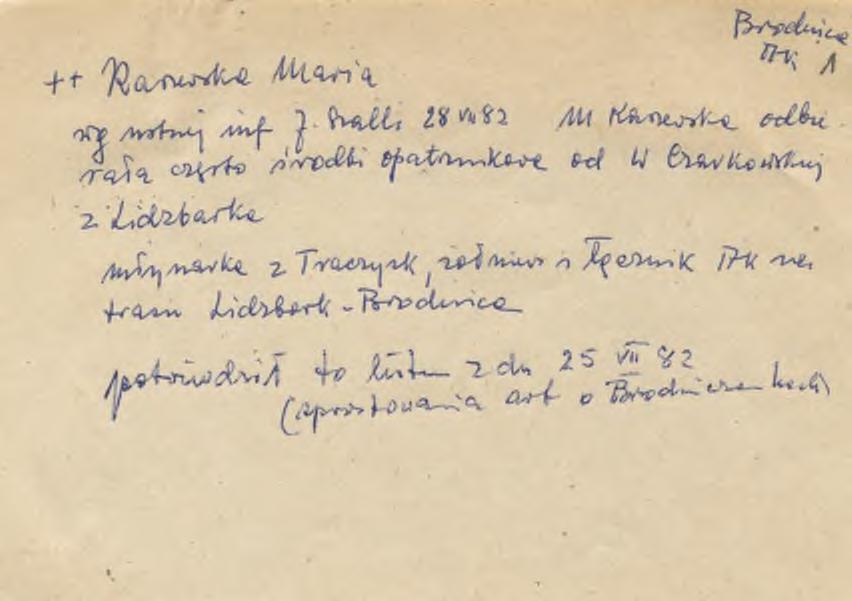 Brodnica
AK 1
++ Karewska Maria
wg ustnej inf J. Szalli 28 VII 82 M Karewska odbie-
rała często środki opatrunkowe od W Czarkowskiej
z Lidzbarka
młynarka z Traczysk, żołnierz i łącznik AK na
trasie Lidzbark-Brodnica
potwierdził to listem z dn 25 VII 82
(sprostowania art o Brodniczankach)